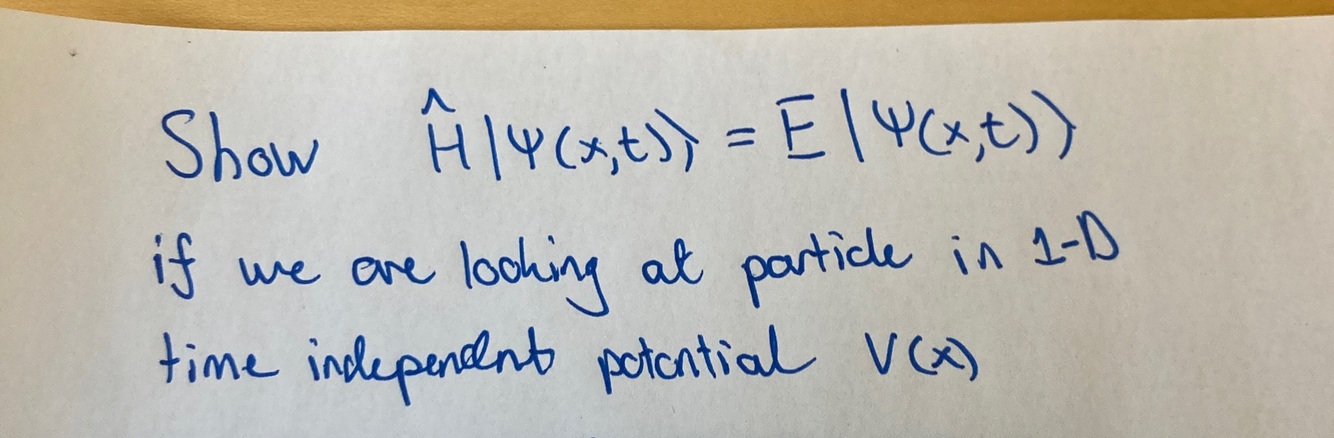 Show Ĥ|Ψ(x,t)⟩ = E|Ψ(x,t)⟩
if we are looking at particle in 1-D
time independent potential V(x)